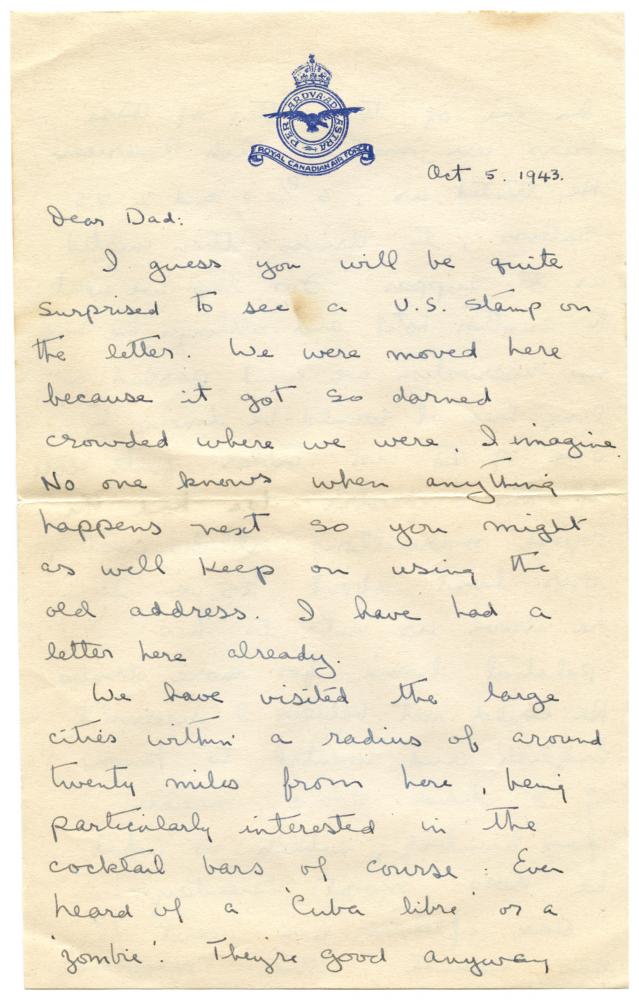 PER ARDUA AD ASTRA
ROYAL CANADIAN AIR FORCE
Oct 5. 1943.
Dear Dad:
I guess you will be quite
surprised to see a U.S. stamp on
the letter. We were moved here
because it got so darned
crowded where we were, I imagine.
No one knows when anything
happens next so you might
as well keep on using the
old address. I have had a
letter here already.
We have visited the large
cities within a radius of around
twenty miles from here, being
particularly interested in the
cocktail bars of course. Ever
heard of a 'Cuba libre' or a
'zombie'. They're good anyway